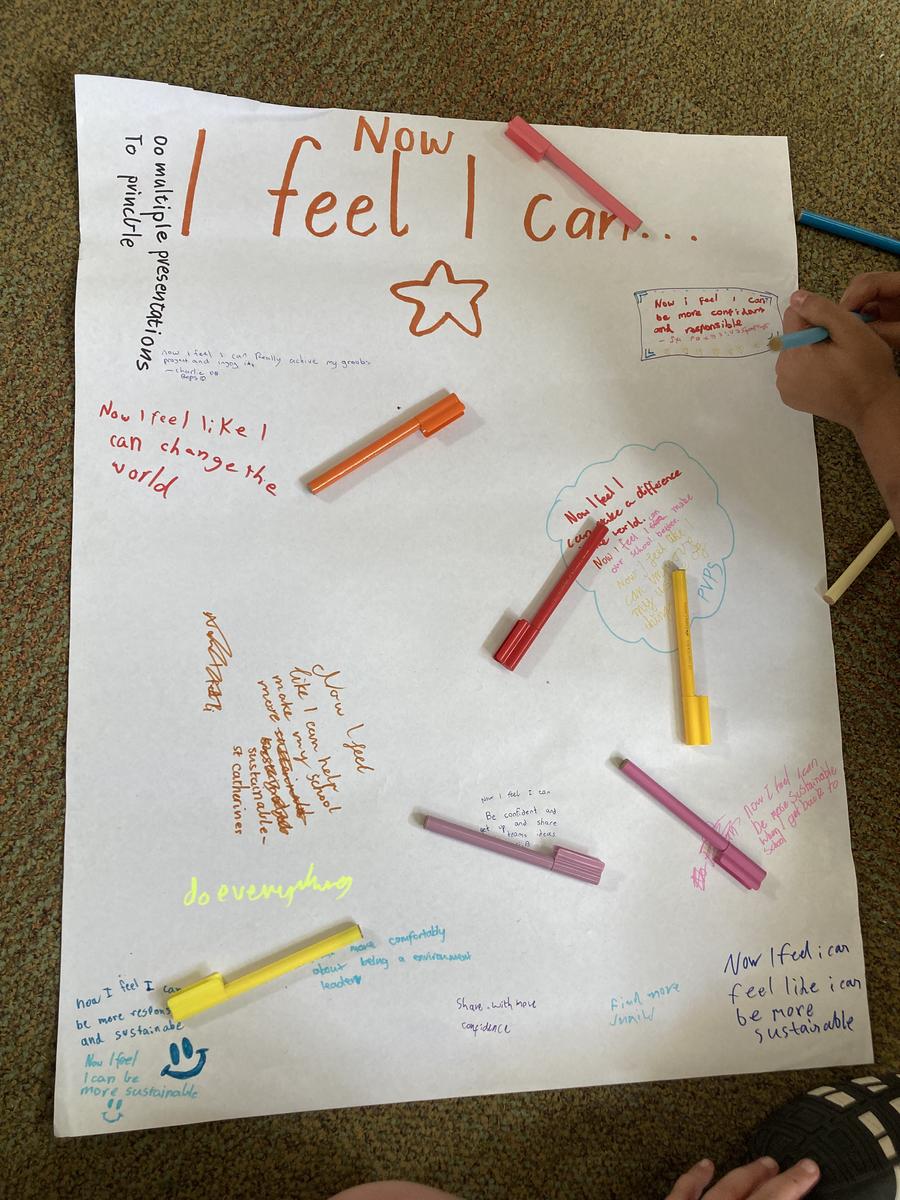 Now
I feel I can...
Do multiple presentations
To princble
Now i feel i can
be more confidant
and responsible
now I feel I can Really achive my groobs
project and
- Charlie
Now I feel like I
can change the
world
Now I feel I
can make a difference
world.
Now I feel I can make
our school better
Now I feel like I
can
my
things
PVPS
Now I feel
like I can help
make my school
more
sustainable -
st catharines
Now I feel I can
Be confident and
get up and share
teams ideas
Now I feel I can
be more sustainable
when I go back to
school
do everything
more comfortably
about being a environment
leader
now I feel I can
be more respons
and sustainable
Now I feel
I can be
more sustainable
Share with more
confidence
Find more
Now I feel i can
feel like i can
be more
sustainable